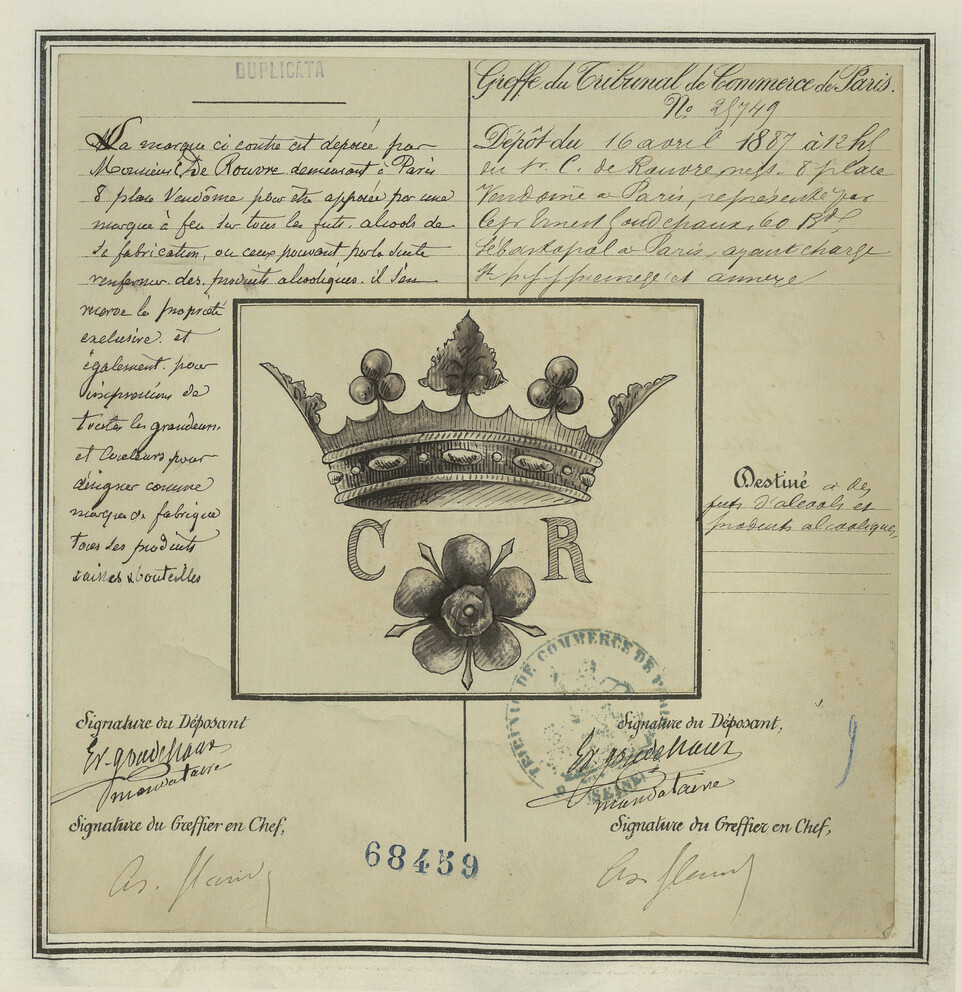 DUPLICATA
La marque ci contre est déposée par
Monsieur C. De Rouvre demeurant à Paris
8 place Vendôme pour être apposée par une
marque à feu sur tous les futs, alcools de
sa fabrication, ou ceux pouvant par la suite
renfermer des produits alcooliques. il s'en
réserve la propriété
exclusive. et
également pour
impressions de
toutes les grandeurs
et couleurs pour
désigner comme
marque de fabrique
tous ses produits
caisses & bouteilles
Greffe du Tribunal de Commerce de Paris.
No 25749
Dépôt du 16 avril 1887 à 12 h
du Sr. C. de Rouvre, 8 place
Vendôme à Paris, représenté par
le Sr Ernest Goudchaux, 60 Bd
Sébastopol à Paris, ayant charge
et annexe
C R
Destiné à des
futs d'alcools et
produits alcooliques
TRIBUNAL DE COMMERCE DE
SEINE
Signature du Déposant
Er. Goudchaux
mandataire
Signature du Greffier en Chef,
Signature du Déposant,
Er Goudchaux
mandataire
Signature du Greffier en Chef,
68459